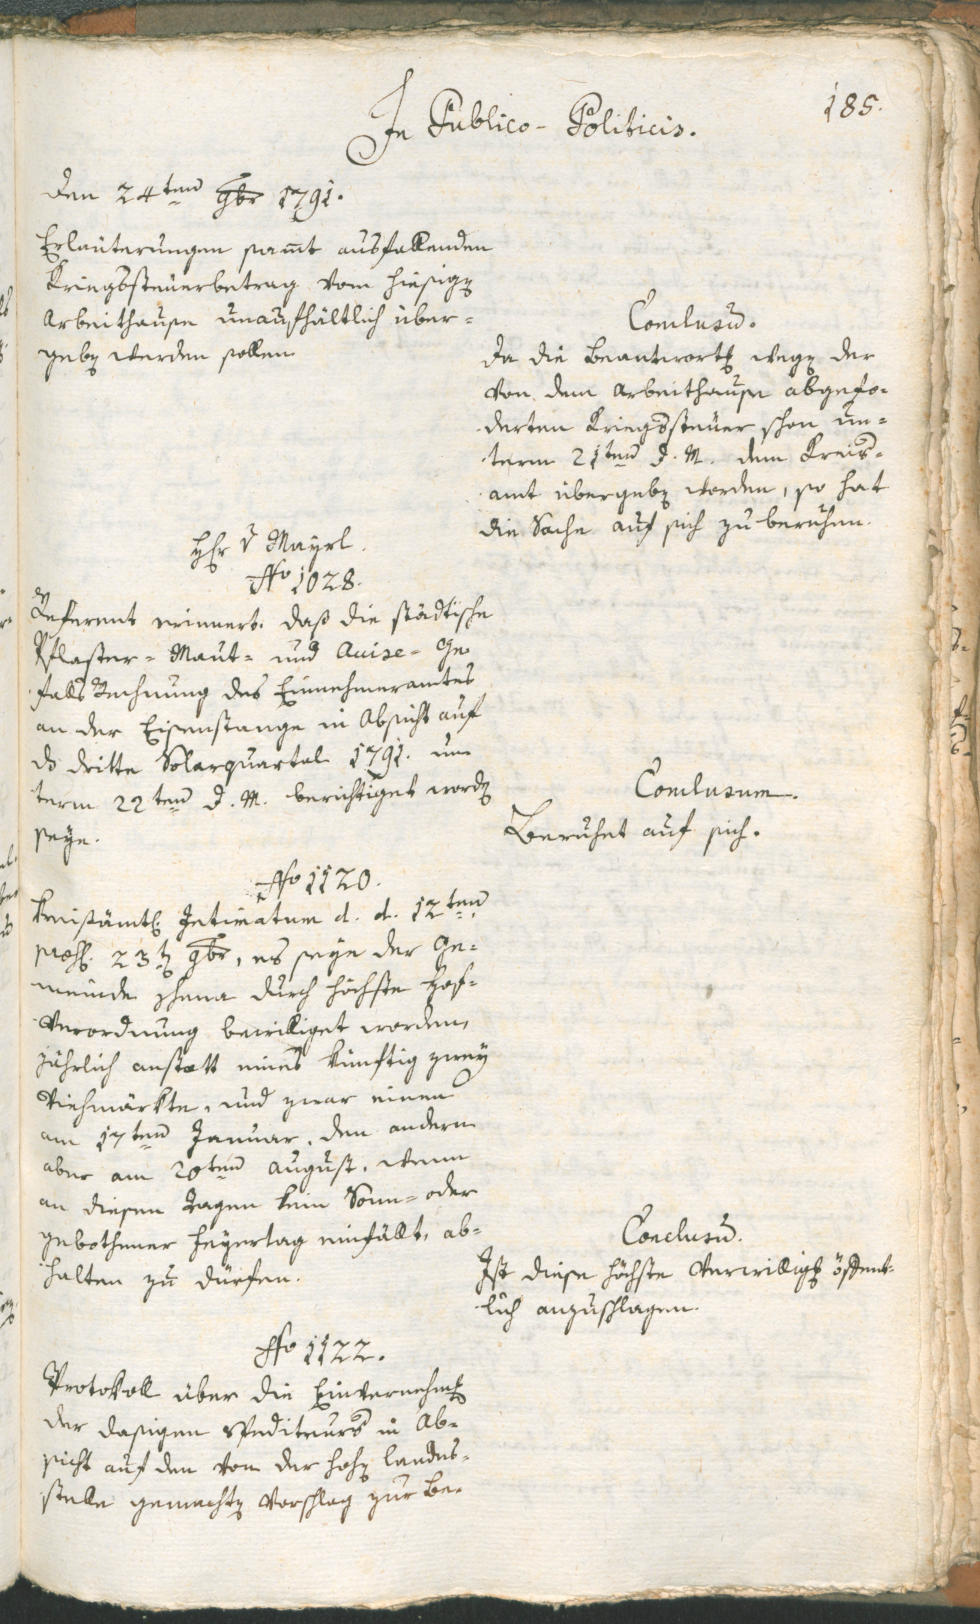 In Publico-Politicis.
185.
den 24ten 9br 1791.
Erläuterungen samt ausfallenden
Kriegssteuerbetrag vom hiesig
Arbeithause unaufhältlich über=
geb werden sollen
Conclusũ.
Da die Beantwort weg der
von dem Arbeithause abgefo=
derten Kriegssteuer schon un=
term 21ten d. M. dem Kreis=
amt übergeb worden, so hat
die Sache auf sich zu beruhen.
H v Mayrl.
No 1028.
Referent erinnert. daß die städtische
Pflaster= Maut= und Accise= Ge
falls Rechnung des Einnehmeramtes
an der Eisenstange in Absicht auf
ds dritte Solarquartal 1791. un
term 22ten d. M. berichtiget word
seye.
Conclusum.
Beruhet auf sich.
No 1120.
Kreisämtl Intimatum d. d. 12ten
23t 9br, es seye der Ge=
meinde durch höchste Hof=
verordnung bewilliget worden,
jährlich anstatt eines künftig zwey
Viehmärkte, und zwar einen
am 17ten Januar, den andern
aber am 20ten August, wenn
an diesen Tagen kein Sonn= oder
gebothener Feyertag einfällt, ab=
halten zu dürfen.
Conclusũ.
Ist diese höchste Verwillig öffent=
lich anzuschlagen.
No 1122.
Protokoll über die Einvernehm
der dasigen Spediteurs in Ab=
sicht auf den von der hoh Landes=
stelle gemacht Vorschlag zur Be=